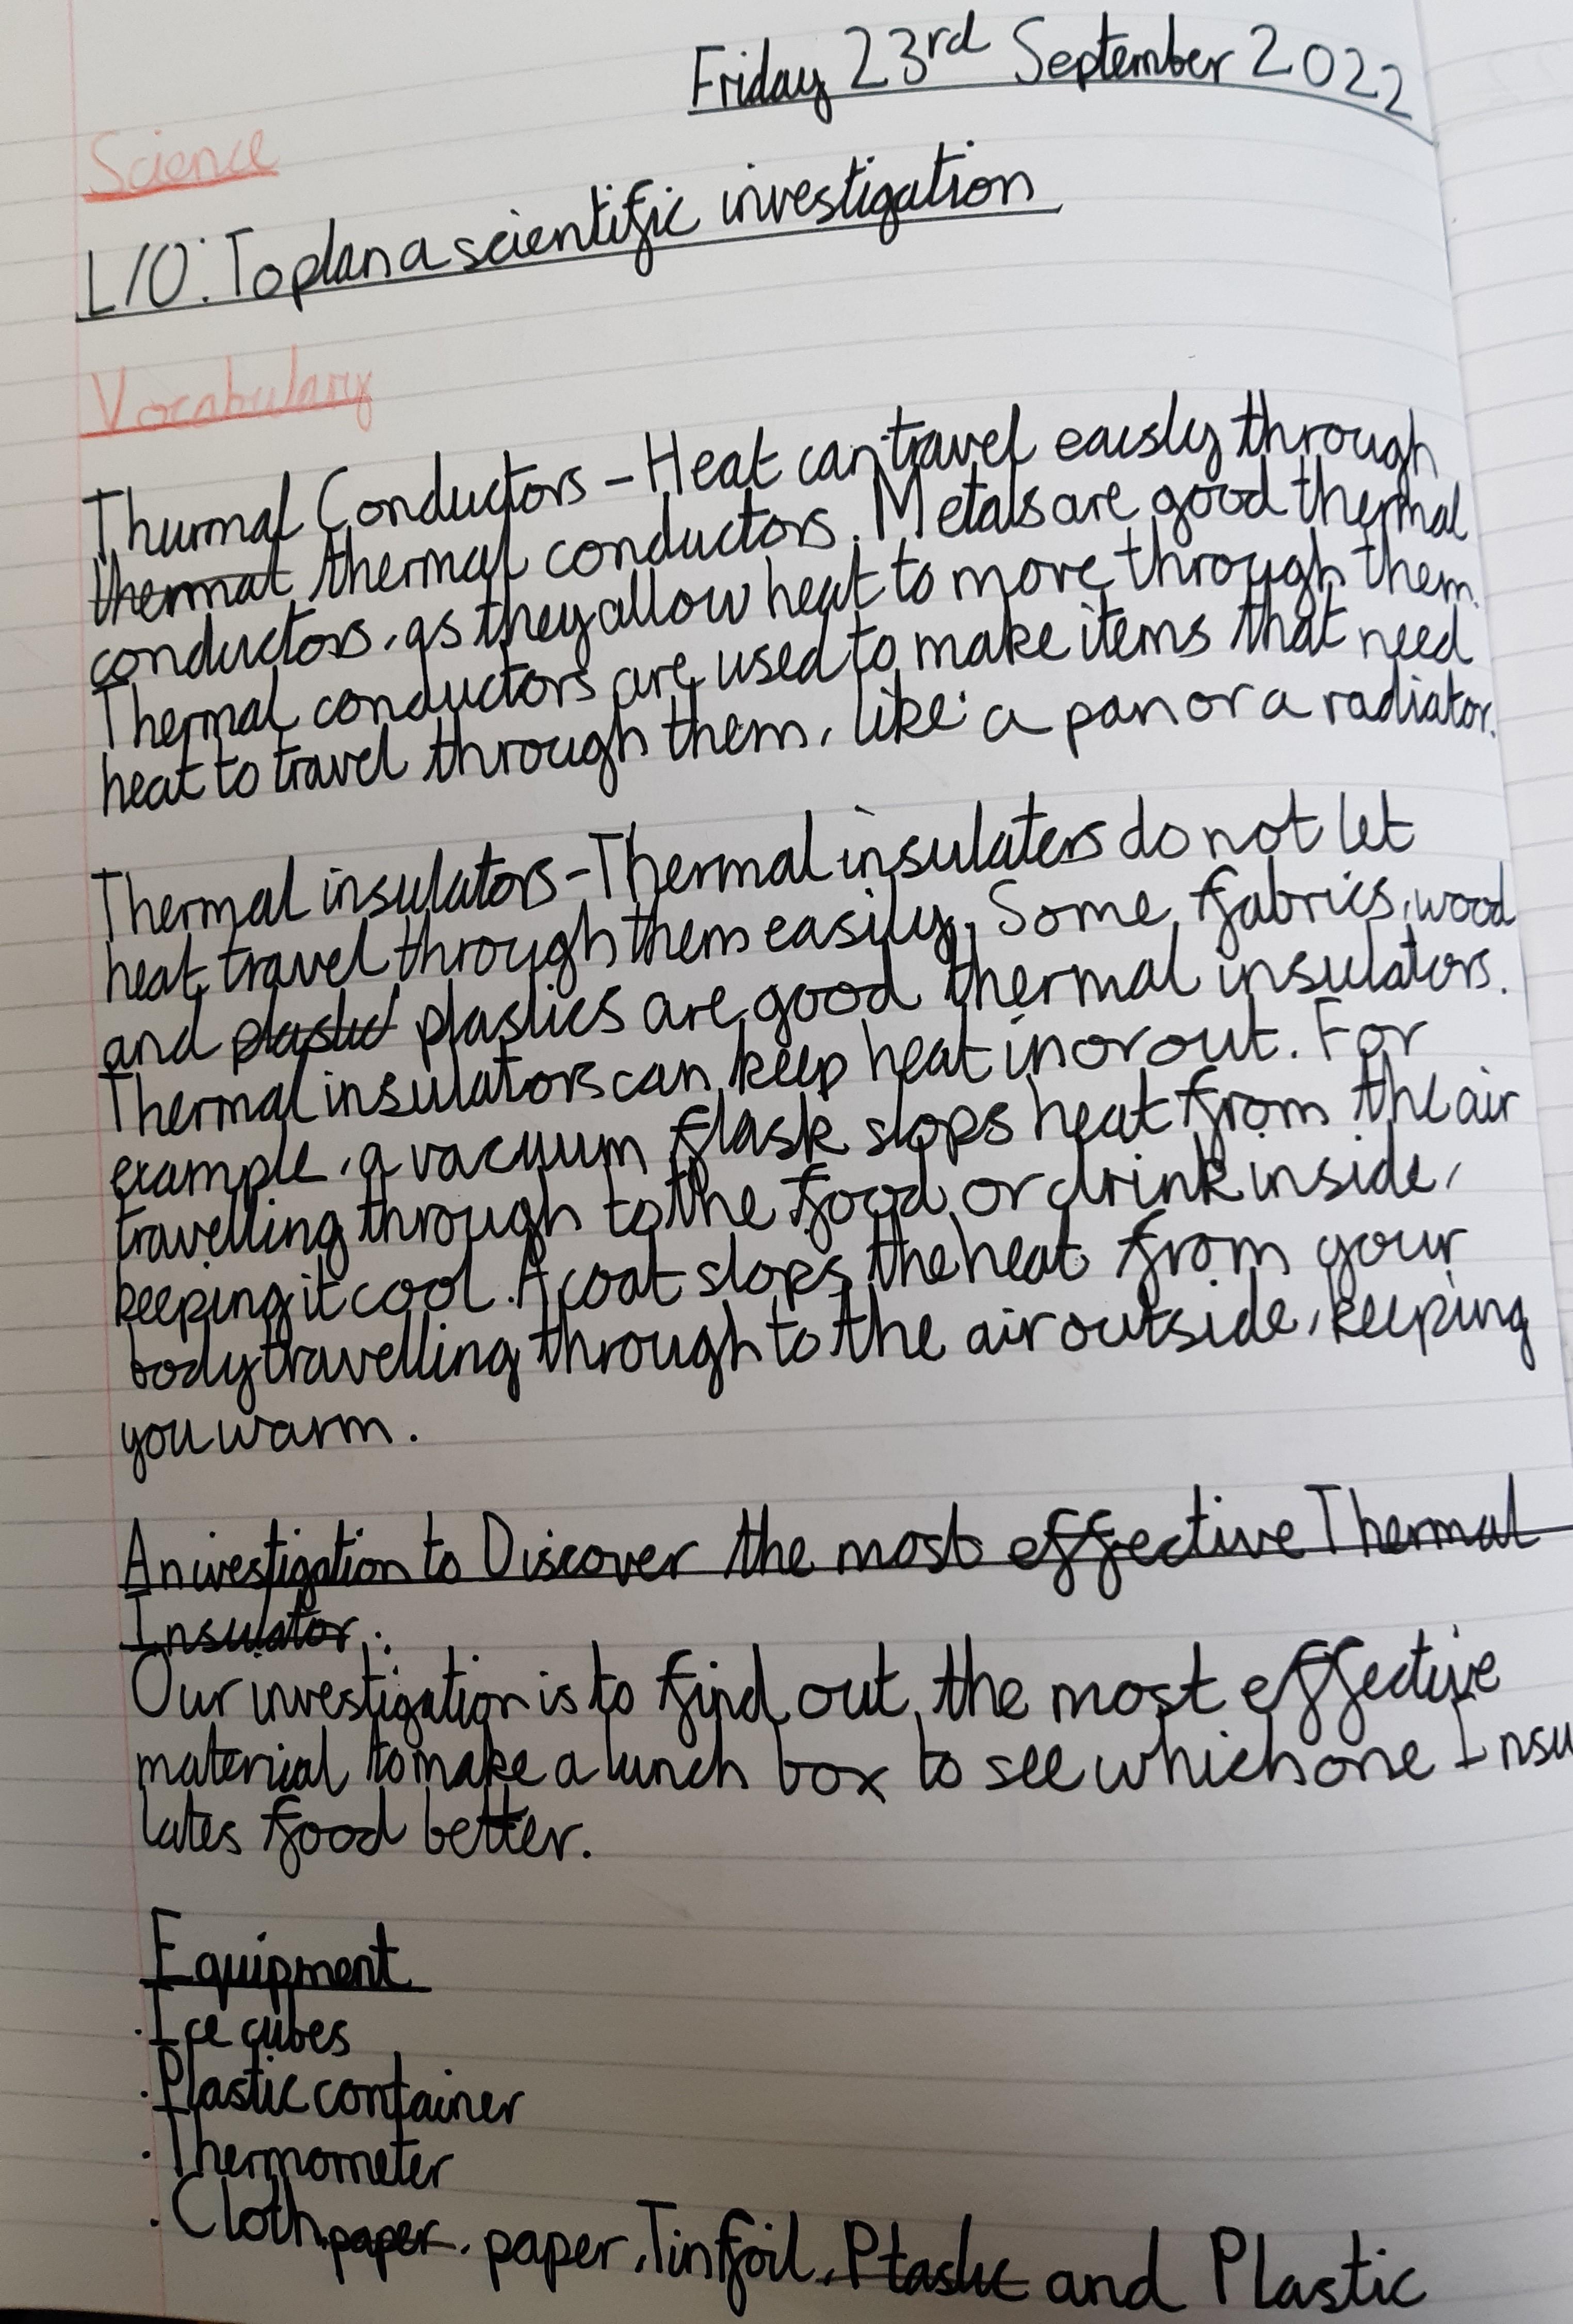 Friday 23rd September 2022
Science
L/O: To plan a scientific investigation
Vocabulary
Thurmal Conductors - Heat can travel eaisly through
thermal thermal conductors. Metals are good thermal
conductors, as they allow heat to move through them.
Thermal conductors are used to make items that need
heat to travel through them, like a pan or a radiator.
Thermal insulators - Thermal insulaters do not let
heat travel through them easily. Some fabrics, wood
and plastic plastics are good thermal insulators.
Thermal insulators can keep heat in or out. For
example, a vacuum flask stops heat from the air
travelling through to the food or drink inside,
keeping it cool. A coat stops the heat from your
body travelling through to the air outside, keeping
you warm.
An ivestigation to Discover the most effective Thermal
Insulator.
Our investigation is to find out the most effective
material to make a lunch box to see which one Insu
lates food better.
Equipment
·Ice cubes
·Plastic container
·Thermometer
·Cloth, paper, paper, Tinfoil, Plastic and Plastic